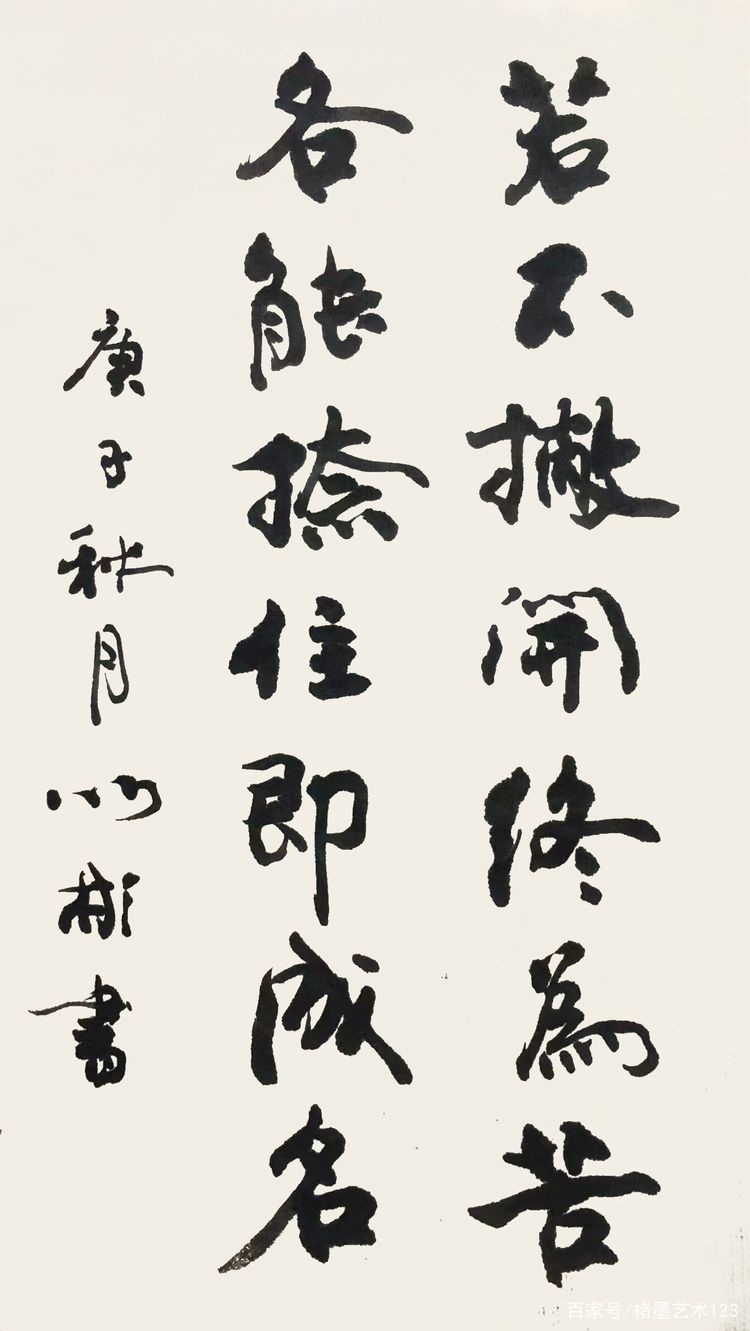 若不撇開終為苦
各能捺住即成名
庚子秋月 彬書
百家号/楮墨艺术123